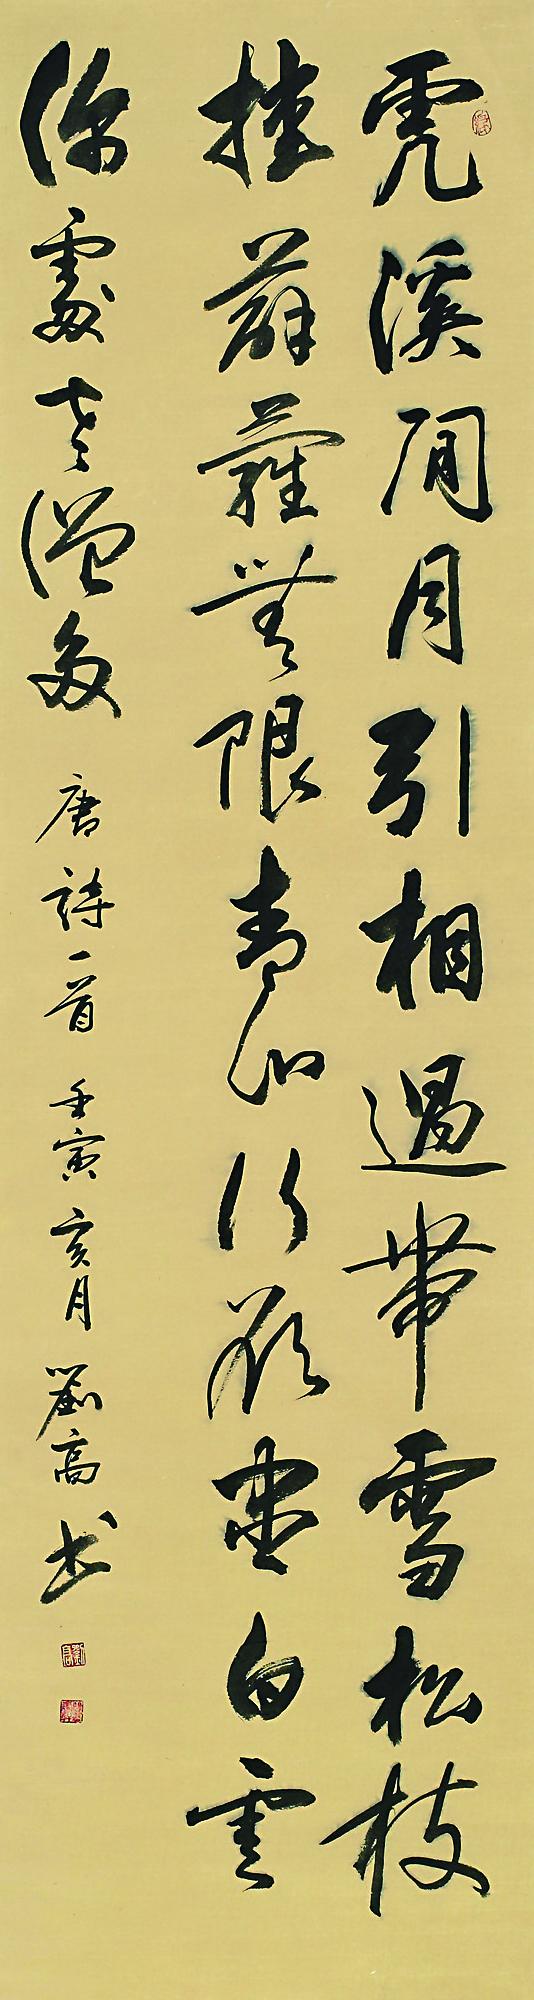 虎溪閒月引相過帶雪松枝
掛薜蘿無限青山行欲盡白雲
深處老僧多 唐詩一首 壬寅亥月 劉高書